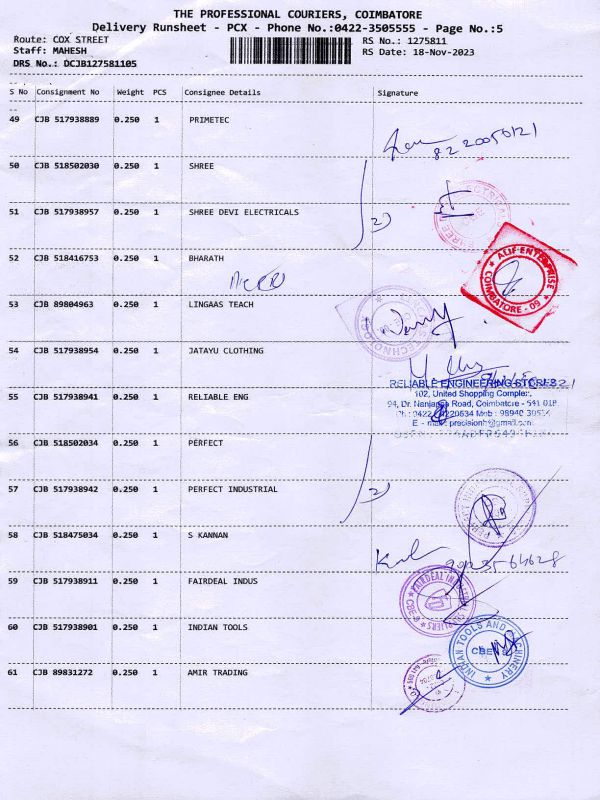 THE PROFESSIONAL COURIERS, COIMBATORE
Delivery Runsheet - PCX - Phone No.:0422-3505555 - Page No.:5
Route: COX STREET RS No.: 1275811
Staff: MAHESH RS Date: 18-Nov-2023
DRS No.: DCJB127581105
S No Consignment No Weight PCS Consignee Details Signature
49 CJB 517938889 0.250 1 PRIMETEC
50 CJB 518502030 0.250 1 SHREE
51 CJB 517938957 0.250 1 SHREE DEVI ELECTRICALS
52 CJB 518416753 0.250 1 BHARATH
ALIF ENTERPRISE
COIMBATORE - 09
53 CJB 89804963 0.250 1 LINGAAS TEACH
54 CJB 517938954 0.250 1 JATAYU CLOTHING
RELIABLE ENGINEERING STORES
102, United Shopping Complex,
94, Dr. Nanjappa Road, Coimbatore - 641 018.
55 CJB 517938941 0.250 1 RELIABLE ENG
56 CJB 518502034 0.250 1 PERFECT
57 CJB 517938942 0.250 1 PERFECT INDUSTRIAL
58 CJB 518475034 0.250 1 S KANNAN
59 CJB 517938911 0.250 1 FAIRDEAL INDUS
60 CJB 517938901 0.250 1 INDIAN TOOLS
INDIAN TOOLS AND MACHINERY
CBE
61 CJB 89831272 0.250 1 AMIR TRADING